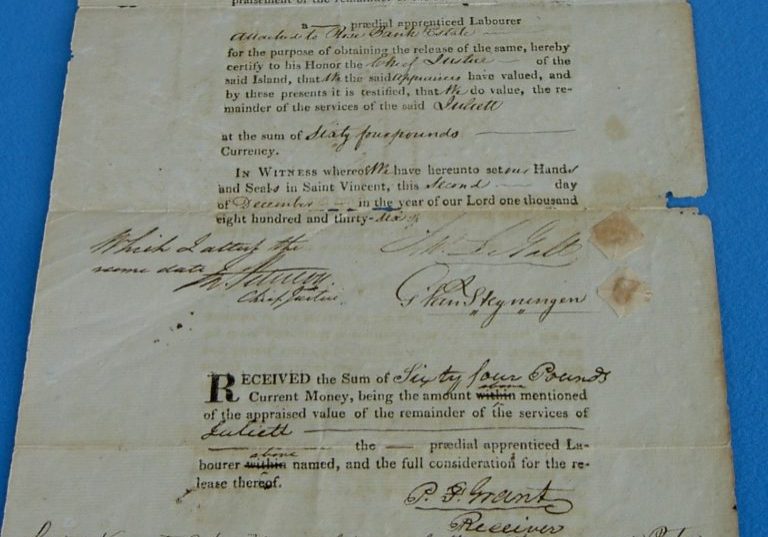 praisement of the remainder of the
a — prædial apprenticed Labourer
Attached to Rose Bank Estate
for the purpose of obtaining the release of the same, hereby
certify to his Honor the Chief Justice of the
said Island, that We the said Appraisers have valued, and
by these presents it is testified, that We do value, the re-
mainder of the services of the said Juliett
at the sum of Sixty four pounds
Currency.
IN WITNESS whereof We have hereunto set our Hands
and Seals in Saint Vincent, this Second day
of December in the year of our Lord one thousand
eight hundred and thirty-six
Which I attest the
same date
Chief Justice
RECEIVED the Sum of Sixty four Pounds
Current Money, being the amount within above mentioned
of the appraised value of the remainder of the services of
Juliett
the — prædial apprenticed La-
bourer within above named, and the full consideration for the re-
lease thereof.
P. S. Grant
Receiver